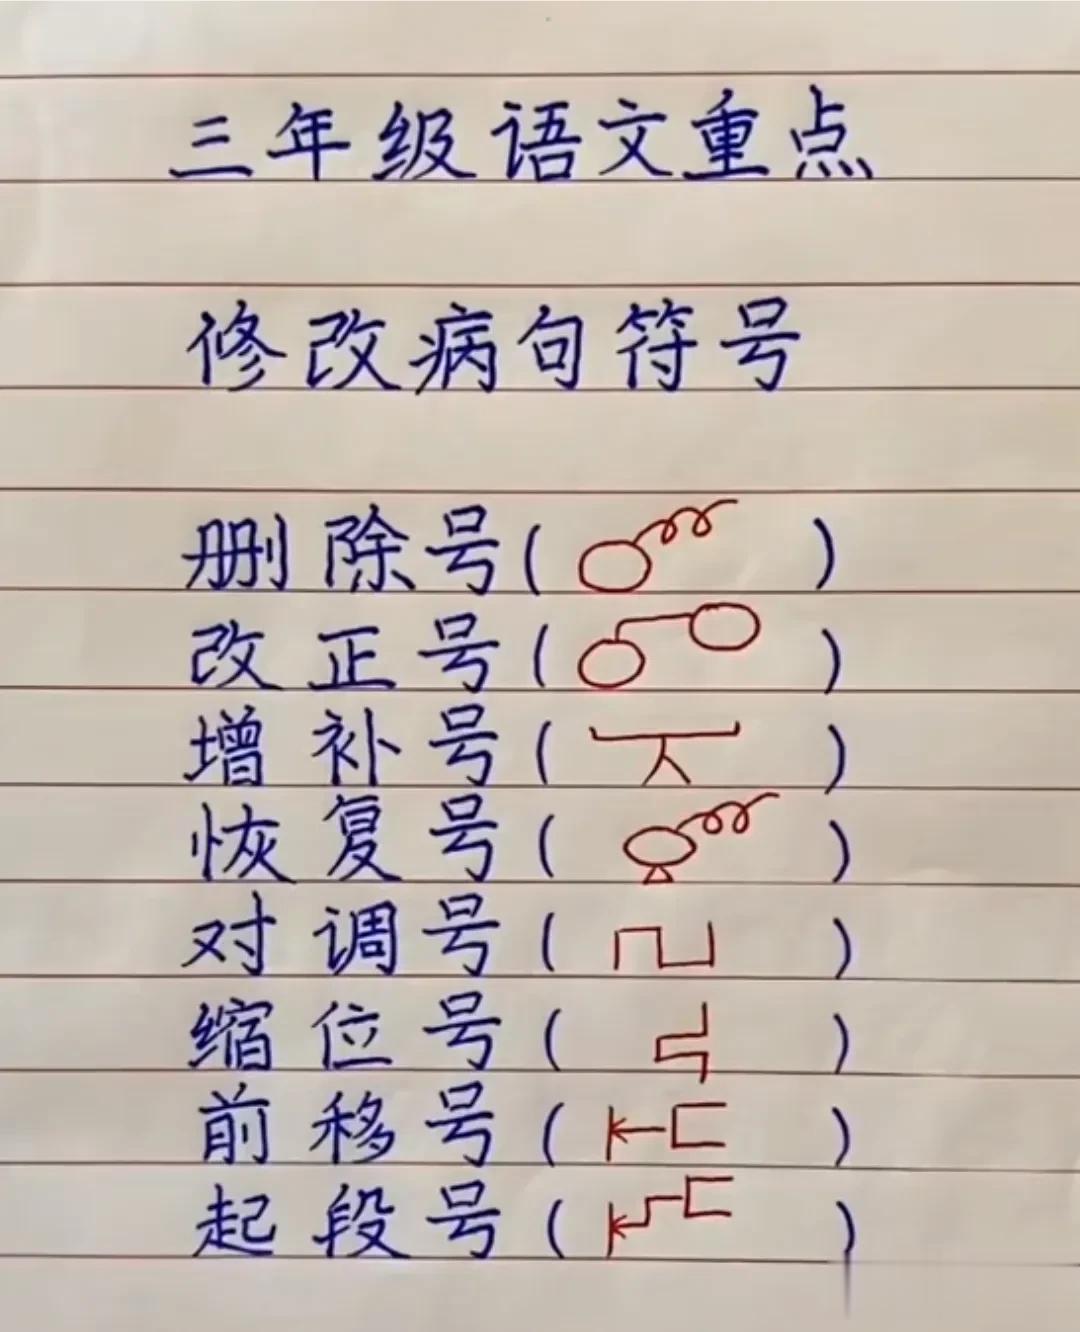 三年级语文重点
修改病句符号
删除号( )
改正号( )
增补号( )
恢复号( )
对调号( )
缩位号( )
前移号( )
起段号( )